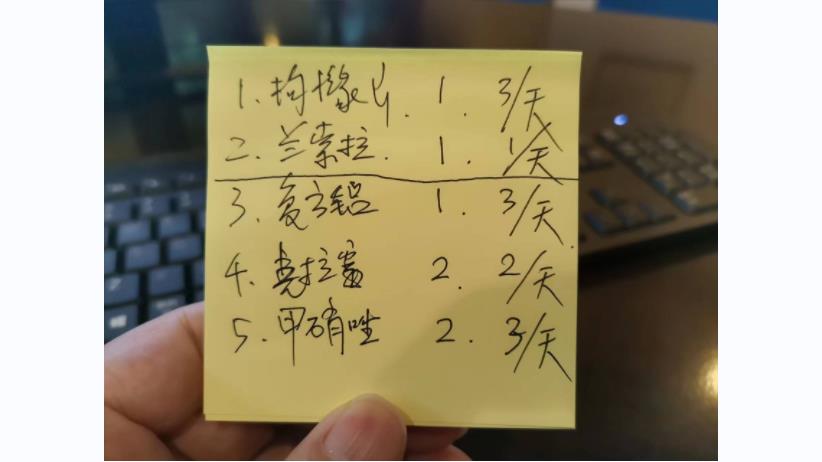 1. 枸橼片. 1. 3/天
2. 兰索拉. 1. 1/天
3. 复方铝 1. 3/天.
4. 克拉霉 2. 2/天
5. 甲硝唑 2. 3/天